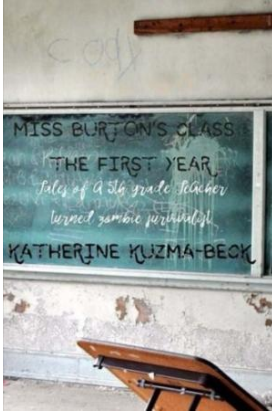 cody
MISS BURTON'S CLASS
THE FIRST YEAR
Tales of a 5th grade Teacher
turned zombie survivalist
KATHERINE KUZMA-BECK